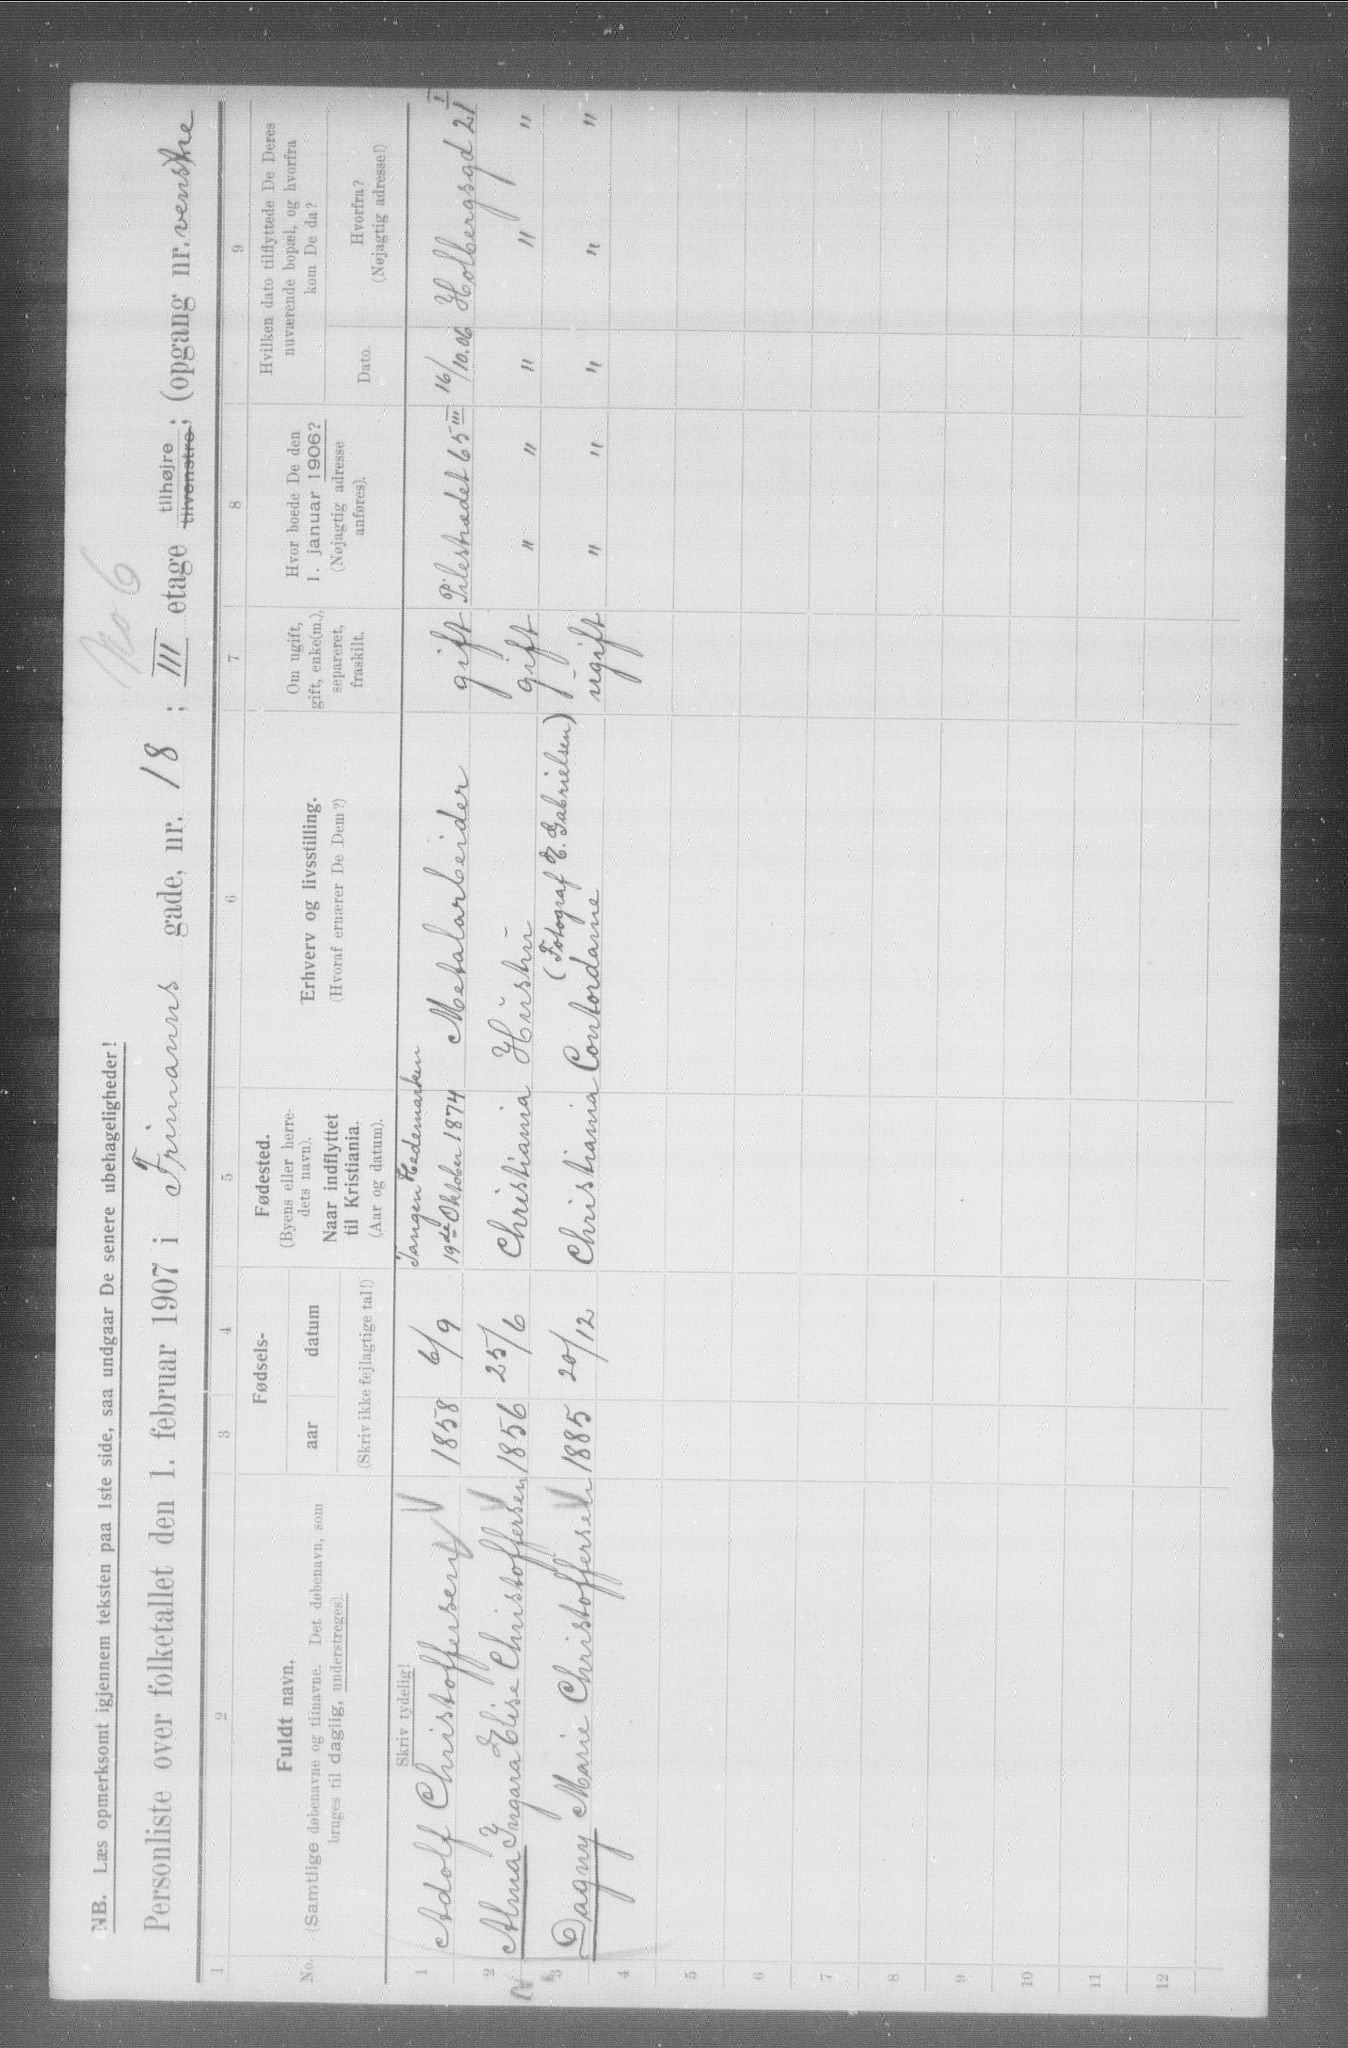 No 6
NB. Læs opmerksomt igjennem teksten paa 1ste side, saa undgaar De senere ubehageligheder!
Personliste over folketallet den 1. februar 1907 i Frimanns gade, nr. 18; III etage tilhøjre tilvenstre; (opgang nr. venstre
1 2 3 4 5 6 7 8 9
No.
Fuldt navn.
(Samtlige døbenavne og tilnavne. Det døbenavn, som
bruges til daglig, understreges).
Fødsels-
aar datum
(Skriv ikke fejlagtige tal!)
Fødested.
(Byens eller herre-
dets navn).
Naar indflyttet
til Kristiania.
(Aar og datum).
Erhverv og livsstilling.
(Hvoraf ernærer De Dem?)
Om ugift,
gift, enke(m.),
separeret,
fraskilt.
Hvor boede De den
1. januar 1906?
(Nøjagtig adresse
anføres).
Hvilken dato tilflyttede De Deres
nuværende bopæl, og hvorfra
kom De da?
Dato.
Hvorfra?
(Nøjagtig adresse!)
Skriv tydelig!
Tangen Hedemarken
1 Adolf Christoffersen 1858 6/9 19de Oktober 1874 Metalarbeider gift Pilestrædet 65 III 16/10.06 Holbergsgd 21 I
2 Alma Ingara Elise Christoffersen 1856 25/6 Christiania Hustru gift " " " " "
(Fotograf E. Gabrielsen)
3 Dagny Marie Christoffersen 1885 20/12 Christiania Contordame ugift " " " " "
4
5
6
7
8
9
10
11
12